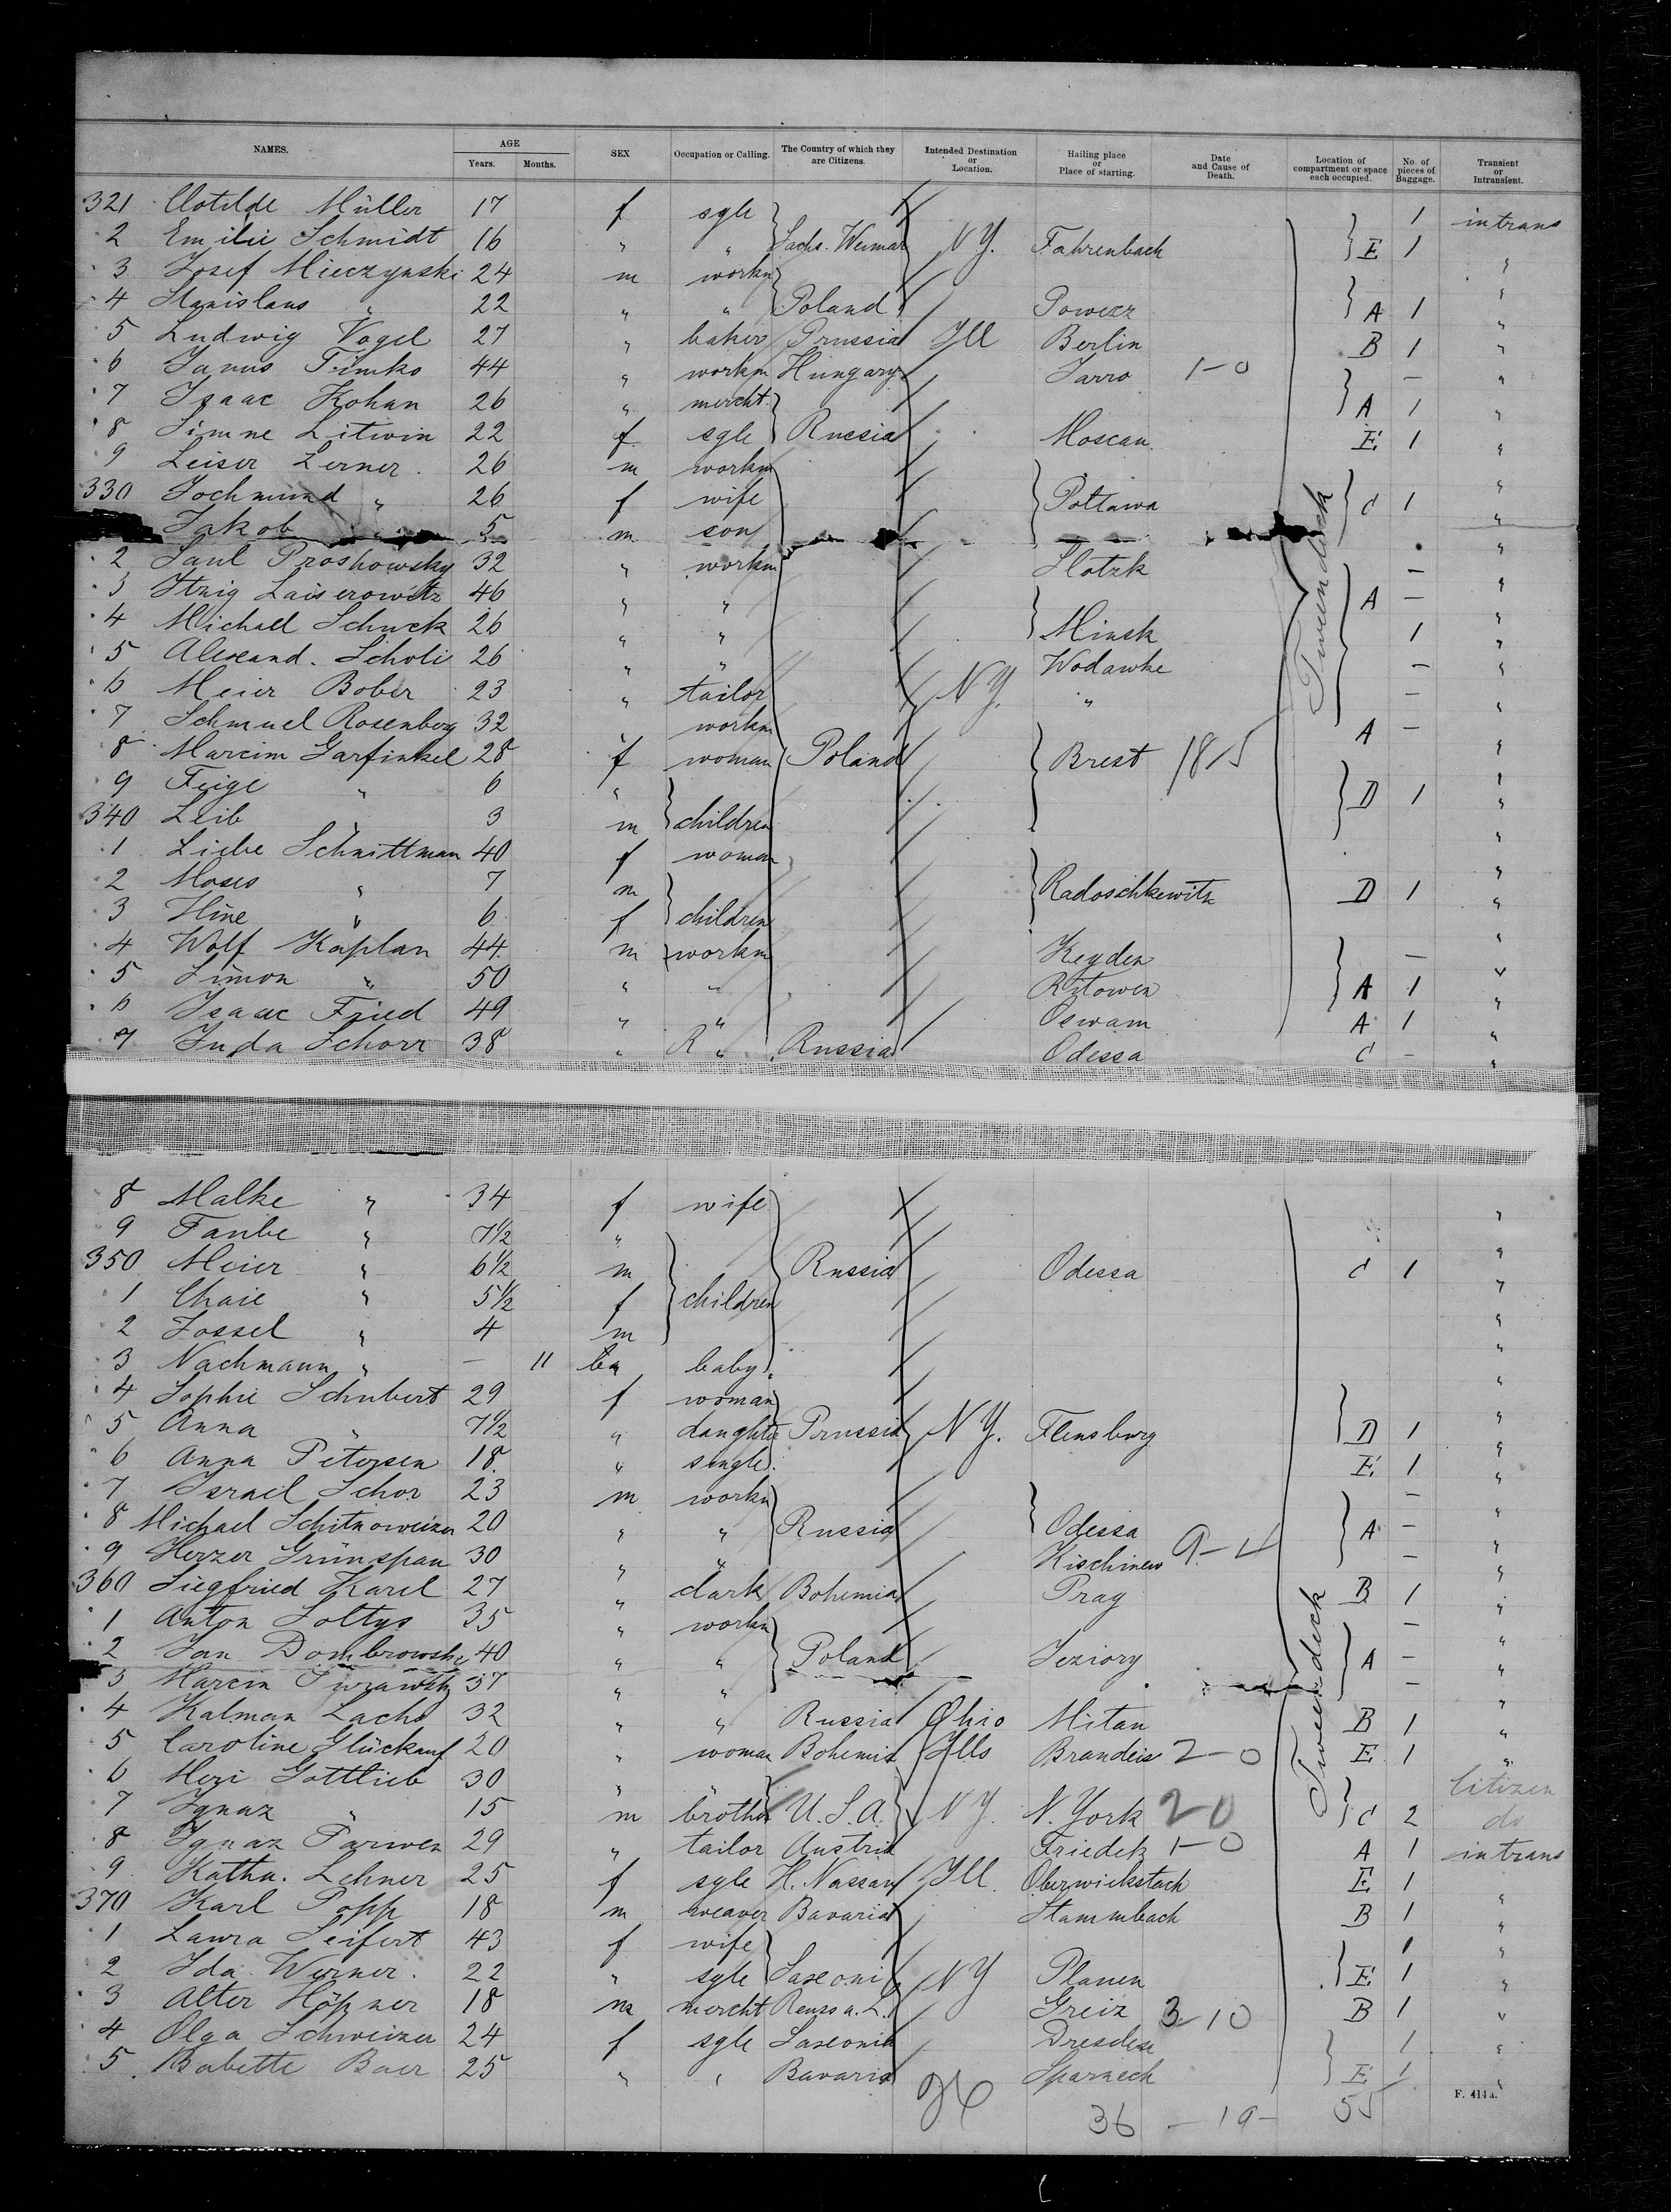 NAMES. AGE Years. Months. SEX Occupation or Calling. The Country of which they are Citizens. Intended Destination or Location. Hailing place or Place of starting. Date and Cause of Death. Location of compartment or space each occupied. No. of pieces of Baggage. Transient or Intransient.
321 Clotilde Müller 17 f sgle 1 in trans
2 Emilie Schmidt 16 " " Sachs. Weimar N Y. Fahrenbach E 1 "
3 Josef Mieczynski 24 m workm "
4 Stanislaus " 22 " " Poland Powerz A 1 "
5 Ludwig Vogel 27 " baker Prussia Ill Berlin B 1 "
6 Janus Timko 44 " workm Hungary Jarro 1-0 - "
7 Isaac Kohan 26 " mercht. A 1 "
8 Simne Litwin 22 f sgle Russia Moscau E 1 "
9 Leiser Lerner 26 m workm "
330 Jochmund " 26 f wife Poltawa C 1 "
Jakob " 5 m son "
2 Saul Proshowsky 32 " workm Slotzk - "
3 Itzig Laiserowitz 46 " " A - "
4 Michael Schuck 26 " " Minsk 1 "
5 Alexand. Scholi 26 " " Wodawke - "
6 Meier Bober 23 " tailor N Y. " - "
7 Schmuel Rosenberg 32 " workm A - "
8 Marcim Garfinkel 28 f woman Poland Brest 18/5 "
9 Feige " 6 " D 1 "
340 Leib " 3 m children "
1 Liebe Schnittman 40 f woman "
2 Moses " 7 m Radoschkewitz D 1 "
3 Hine " 6 f children "
4 Wolf Kaplan 44 m workm Keyden - "
5 Simon " 50 " " Ritowen A 1 "
6 Isaac Fried 49 " " Oswam A 1 "
7 Juda Schorr 38 " R " Russia Odessa C - "
Tweendeck
8 Malke " 34 f wife "
9 Taube " 7 1/2 " "
350 Meier " 6 1/2 m Russia Odessa C 1 "
1 Chaie " 5 1/2 f children "
2 Jossel " 4 m "
3 Nachmann " - 11 baby "
4 Sophie Schubert 29 f woman "
5 Anna " 7 1/2 " daughter Prussia N Y. Flensburg D 1 "
6 Anna Petersen 18 " single E 1 "
7 Israel Schor 23 m workm - "
8 Michael Schitnoweizer 20 " " Russia Odessa A - "
9 Herzer Grünspan 30 " " Kischinew - "
360 Siegfried Karel 27 " clark Bohemia Prag B 1 "
1 Anton Soltys 35 " workm - "
2 Jan Dombrowski 40 " " Poland Jeziory A - "
3 Marcin 37 " " - "
4 Kalman Lachs 32 " " Russia Ohio Mitau B 1 "
5 Caroline Glückauf 20 " woman Bohemia Ills Brandeis 2-0 E 1 "
6 Mezi Gottlieb 30 " Citizen
7 Ignaz " 15 m brother U. S. A. N Y. N. York 20 C 2 do
8 Ignaz Parwez 29 " tailor Austria Friedek 1-0 A 1 in trans
9 Katha. Lehner 25 f sgle H. Nassau Ill Oberwickstach E 1 "
370 Karl Popp 18 m weaver Bavaria Stammbach B 1 "
1 Laura Seifert 43 f wife 1 "
2 Ida Werner 22 " sgle Saxonia N Y Plauen E 1 "
3 Alter Höpner 18 m mercht Reuss a. L. Greiz 3-10 B 1 "
4 Olga Schweizer 24 f sgle Saxonia Dresden 1 "
5 Babette Baer 25 " " Bavaria Sparneck E 1 "
Tweendeck
F. 414 a.
36 - 19 - 55